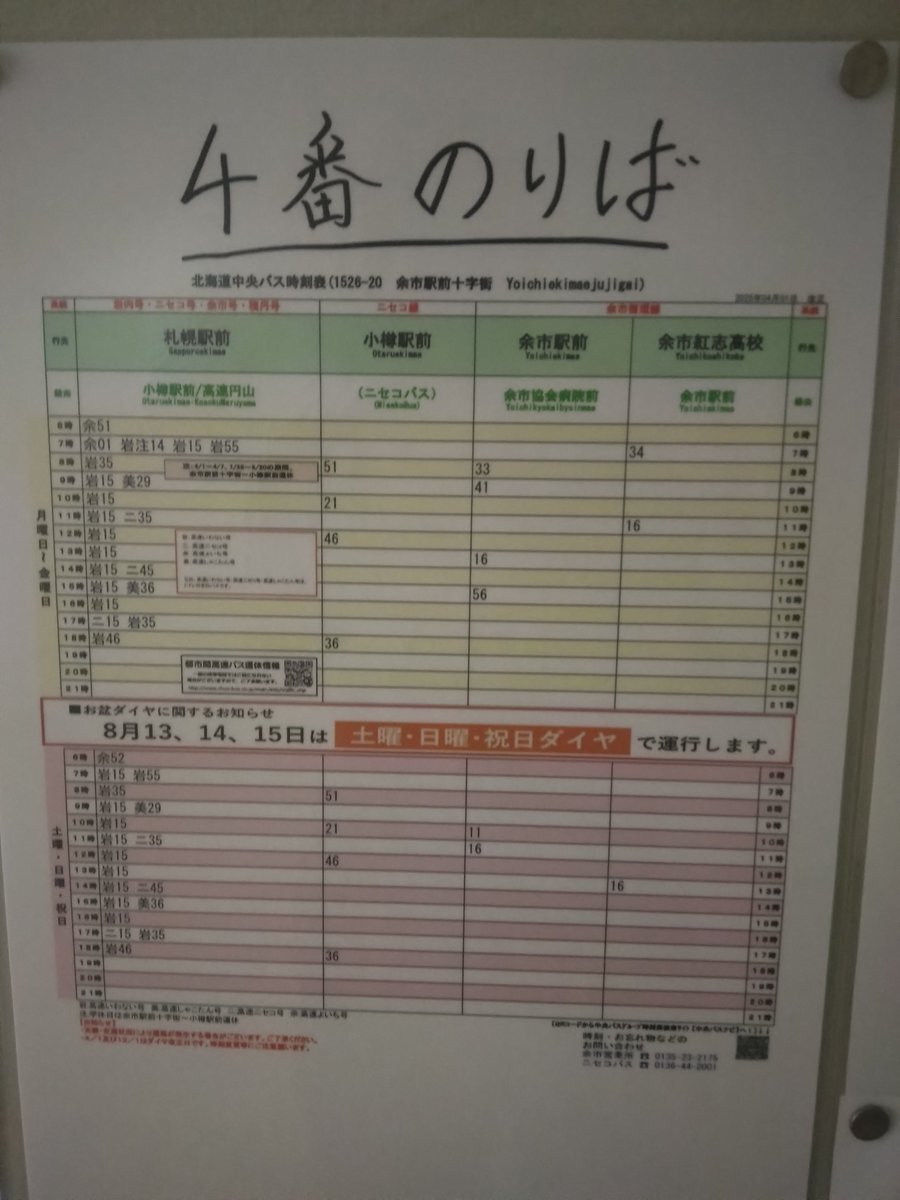 4番のりば
北海道中央バス時刻表(1526-20 余市駅前十字街 Yoichiekimaejujigai)
2025年04月01日 改正
系統 岩内号・ニセコ号・余市号・積丹号 ニセコ線 余市循環線 系統
行先 札幌駅前 小樽駅前 余市駅前 余市紅志高校 行先
Sapporoekimae Otaruekimae Yoichiekimae Yoichikoshikoko
経由 小樽駅前/高速円山 (ニセコバス) 余市協会病院前 余市駅前 経由
Otaruekimae・KosokuMaruyama (NisekoBus) Yoichikyokaibyoinmae Yoichiekimae
月曜日~金曜日
6時 余51 6時
7時 余01 岩注14 岩15 岩55 34 7時
8時 岩35 51 33 8時
9時 岩15 美29 41 9時
10時 岩15 21 10時
11時 岩15 ニ35 16 11時
12時 岩15 46 12時
13時 岩15 16 13時
14時 岩15 ニ45 14時
15時 岩15 美36 56 15時
16時 岩15 16時
17時 ニ15 岩35 17時
18時 岩46 36 18時
19時 19時
20時 20時
21時 21時
余市駅前十字街~小樽駅前運休
岩:高速いわない号
ニ:高速ニセコ号
余:高速よいち号
美:高速しゃこたん号
都市間高速バス運休情報
■お盆ダイヤに関するお知らせ
8月13、14、15日は 土曜・日曜・祝日ダイヤ で運行します。
土曜・日曜・祝日
6時 余52 6時
7時 岩15 岩55 7時
8時 岩35 51 8時
9時 岩15 美29 9時
10時 岩15 21 11 10時
11時 岩15 ニ35 16 11時
12時 岩15 46 12時
13時 岩15 13時
14時 岩15 ニ45 16 14時
15時 岩15 美36 15時
16時 岩15 16時
17時 ニ15 岩35 17時
18時 岩46 36 18時
19時 19時
20時 20時
21時 21時
岩:高速いわない号 美:高速しゃこたん号 ニ:高速ニセコ号 余:高速よいち号
注:学休日は余市駅前十字街~小樽駅前運休
【お知らせ】
時刻・お忘れ物などの
お問い合わせ
余市営業所 ☎ 0135-23-2175
ニセコバス ☎ 0136-44-2001